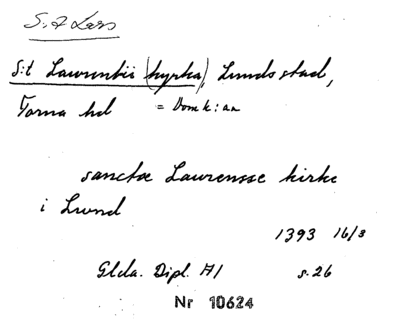 S:t Lars
S:t Laurentii (kyrka), Lunds stad,
Torna hd = Domk:an
sanctæ Laurensse kirke
i Lund
1393 16/3
Glda. Dipl. A1 s. 26
Nr 10624